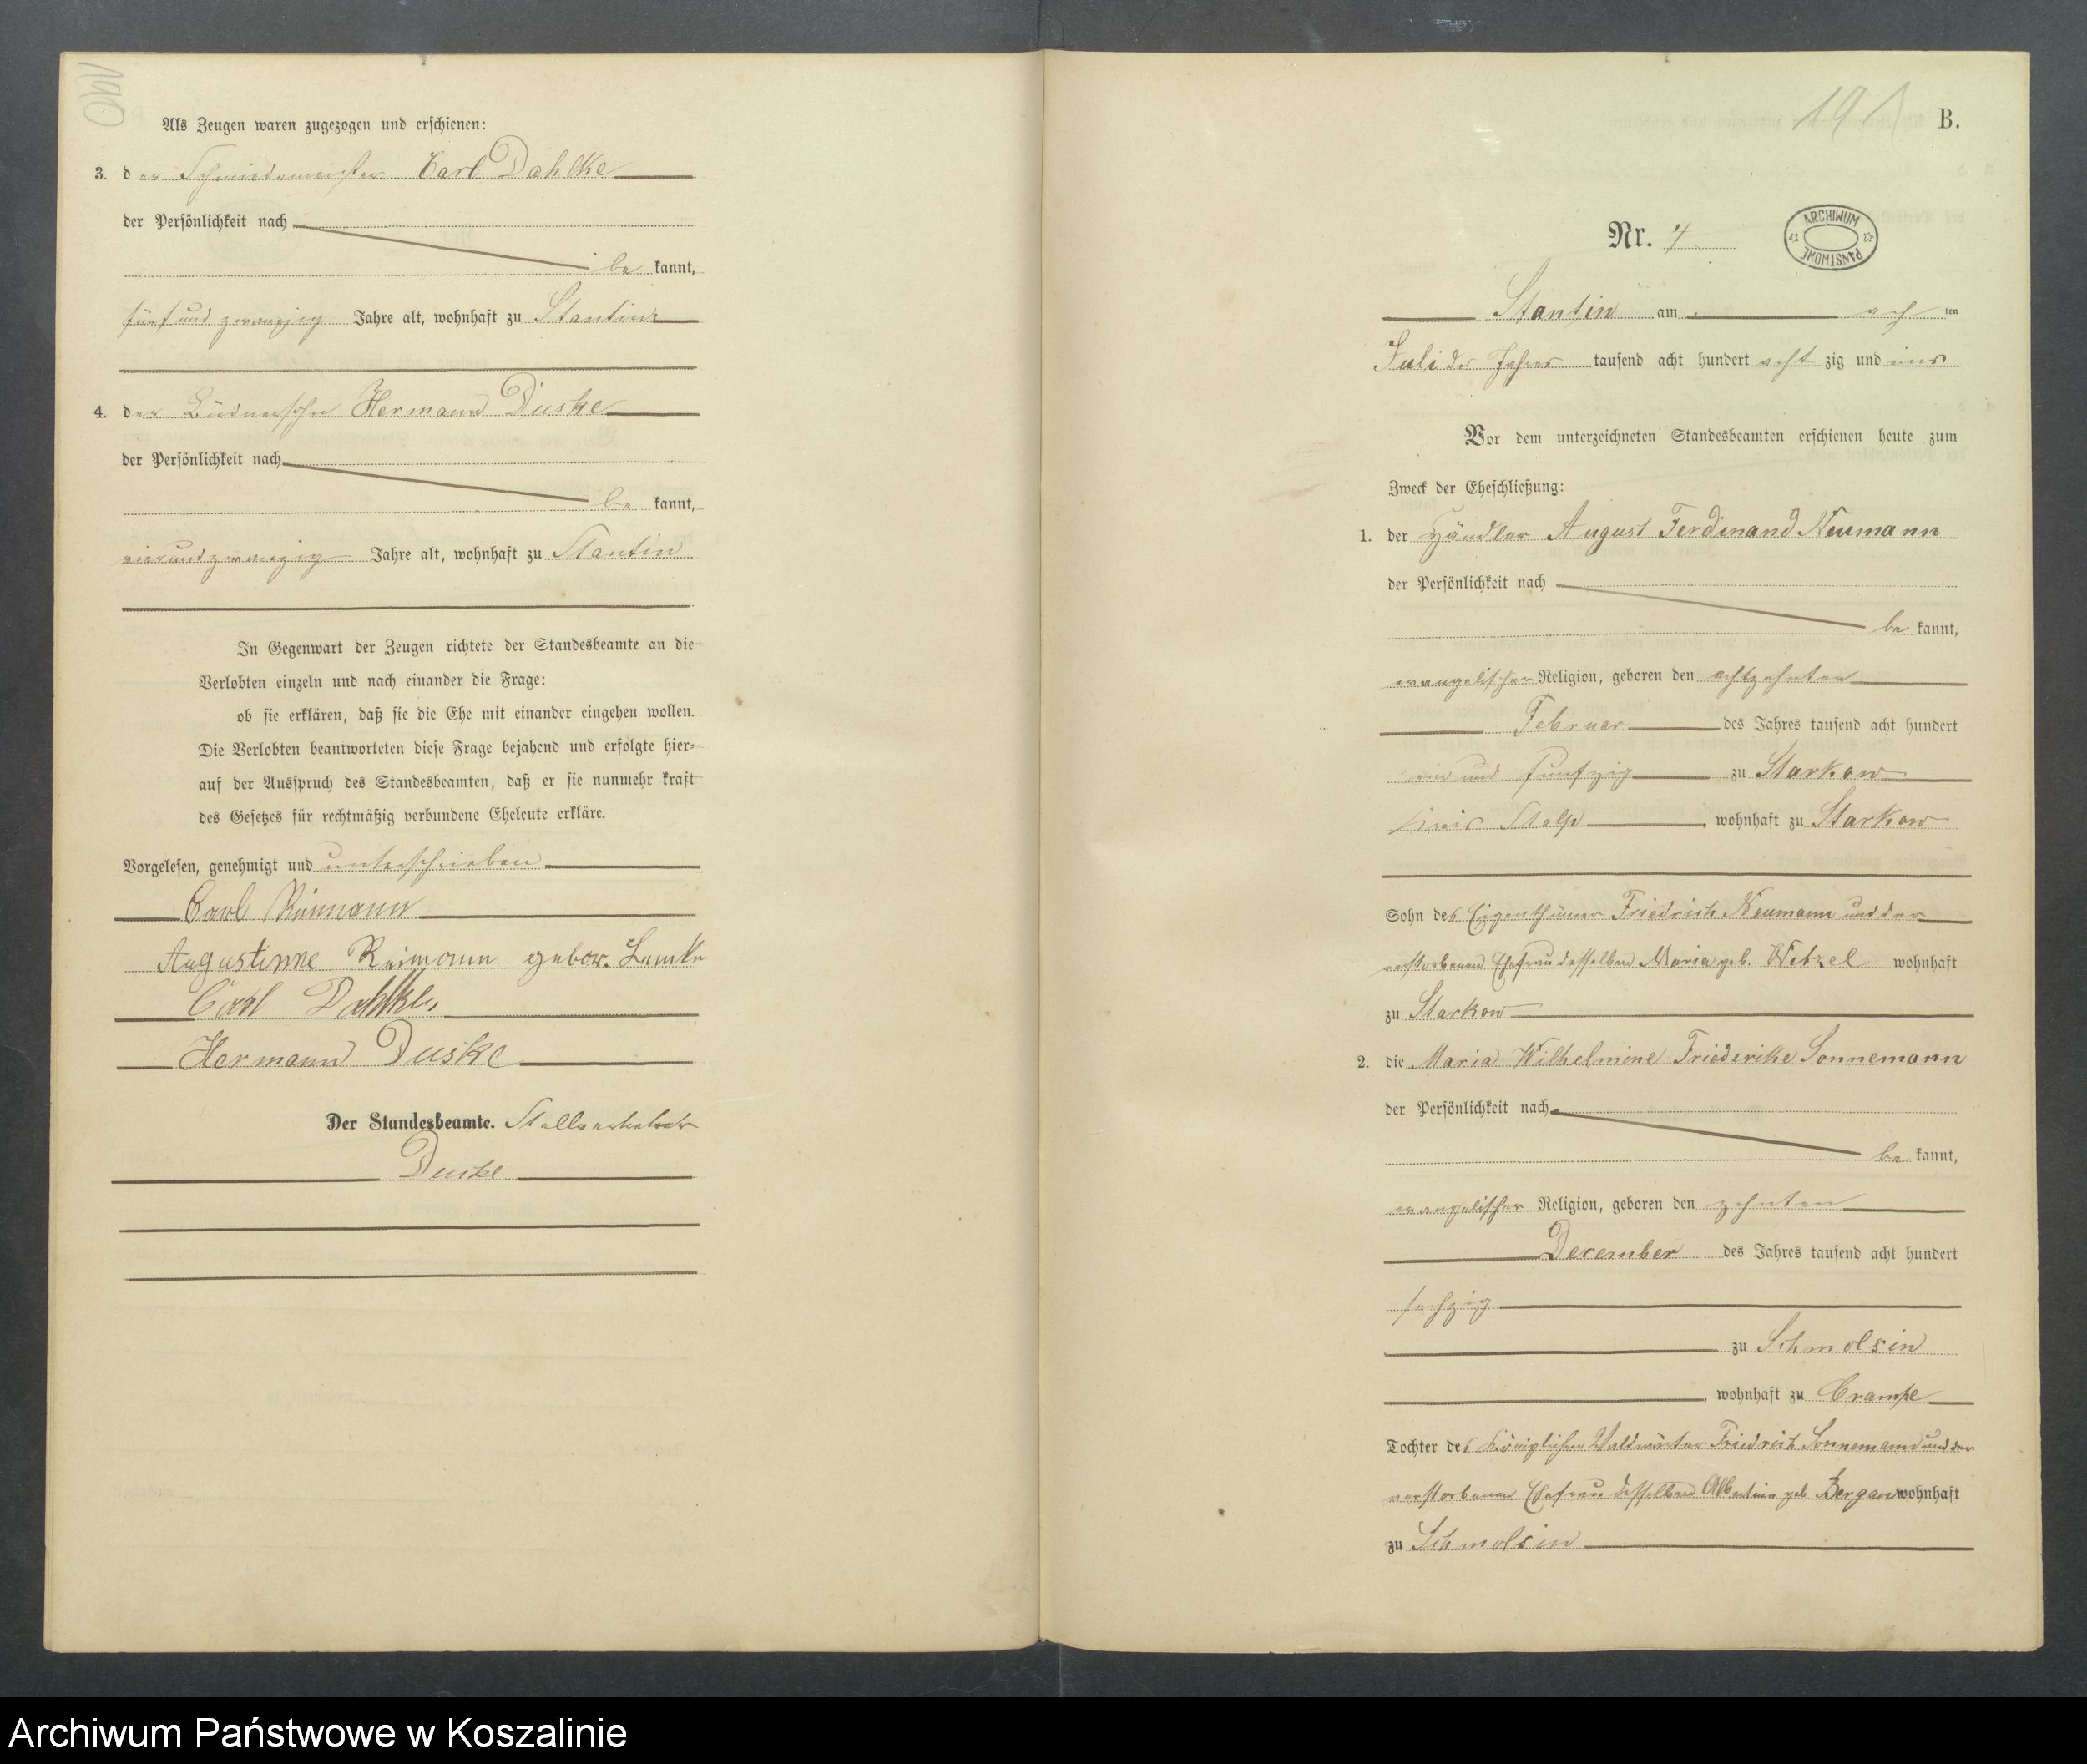 190
Als Zeugen waren zugezogen und erschienen:
3. der Schmiedemeister Carl Dahlke
der Persönlichkeit nach
be kannt,
fünf und zwanzig Jahre alt, wohnhaft zu Stantin
4. der Büdnersohn Hermann Duske
der Persönlichkeit nach
be kannt,
vierundzwanzig Jahre alt, wohnhaft zu Stantin
In Gegenwart der Zeugen richtete der Standesbeamte an die
Verlobten einzeln und nach einander die Frage:
ob sie erklären, daß sie die Ehe mit einander eingehen wollen.
Die Verlobten beantworteten diese Frage bejahend und erfolgte hier-
auf der Ausspruch des Standesbeamten, daß er sie nunmehr kraft
des Gesetzes für rechtmäßig verbundene Eheleute erkläre.
Vorgelesen, genehmigt und unterschrieben
Carl Reimann
Augustinne Reimann gebor. Lemke
Carl Dahlke
Hermann Duske
Der Standesbeamte. Stellvertreter
Duske
191
B.
Nr. 4
ARCHIWUM PAŃSTWOWE
Stantin am acht ten
Juli des Jahres tausend acht hundert acht zig und eins
Vor dem unterzeichneten Standesbeamten erschienen heute zum
Zweck der Eheschließung:
1. der Händler August Ferdinand Neumann
der Persönlichkeit nach
be kannt,
evangelischer Religion, geboren den achtzehnten
Februar des Jahres tausend acht hundert
ein und funfzig zu Starkow
Kreis Stolp, wohnhaft zu Starkow
Sohn des Eigenthümer Friedrich Neumann und der
verstorbenen Ehefrau desselben Maria geb. Wetzel wohnhaft
zu Starkow
2. die Maria Wilhelmine Friederike Sonnemann
der Persönlichkeit nach
be kannt,
evangelischer Religion, geboren den zehnten
December des Jahres tausend acht hundert
sechzig
zu Schmolsin
, wohnhaft zu Crampe
Tochter des Königlichen Waldwärter Friedrich Sonnemann und der
verstorbenen Ehefrau desselben Albertine geb. Bergan wohnhaft
zu Schmolsin
Archiwum Państwowe w Koszalinie